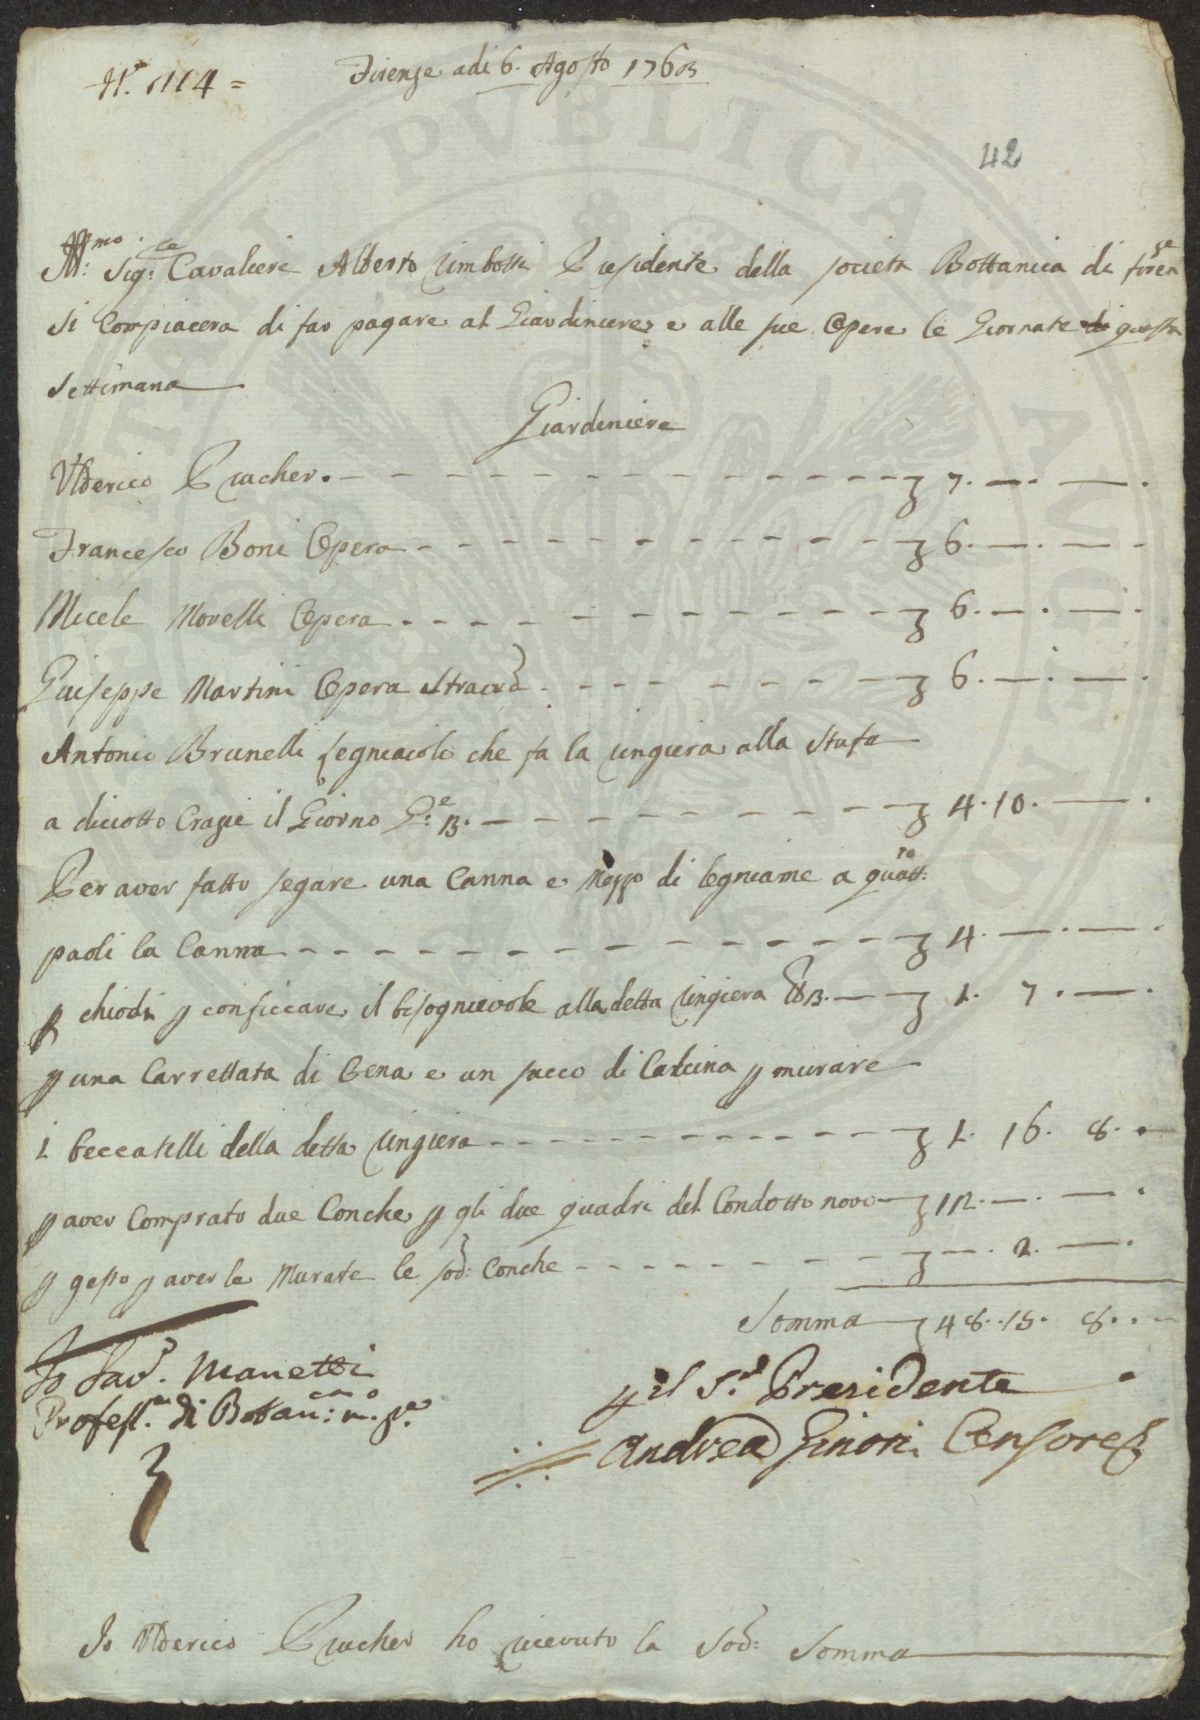 N.° 1114 =
Firenze adi 6. Agosto 1763
42
Ill:mo Sig:re Cavaliere Alberto Rimbotti Presidente della societa Bottanica di firenze
si Compiacera di far pagare al Giardiniere e alle sue Opere le Giornate di questa
settimana
Giardiniere
Ulderico Prucher. 7. — . — .
Francesco Boni Opera 6. — . — .
Micele Morelli Opera 6. — . — .
Giuseppe Martini Opera Straord 6. — . — .
Antonio Brunelli legniaiolo che fa la ringiera alla Stufa
a diciotto Crazie il Giorno G.e 3. 4. 10. — .
Per aver fatto segare una Canna e Mezzo di legniame a quatt:ro
paoli la Canna 4. — . — .
p chiodi p conficcare il bisognievole alla detta Ringiera lb 3. 1. 7. — .
p una Carrettata di Rena e un sacco di Calcina p murare
i beccatelli della detta ringiera 1. 16. 8.
p aver Comprato due Conche p gli due quadri del Condotto novo 12. — . — .
p gesso p averle Murate le sod: Conche — . 2. — .
Somma 48. 15. 8.
Io Sav. Manetti
Profess.e di Bottan:ca m.o p.a
p il S.r Presidente
Andrea Ginori Censore
Io Ulderico Prucher ho ricevuto la Sod: Somma
PUBLICAE